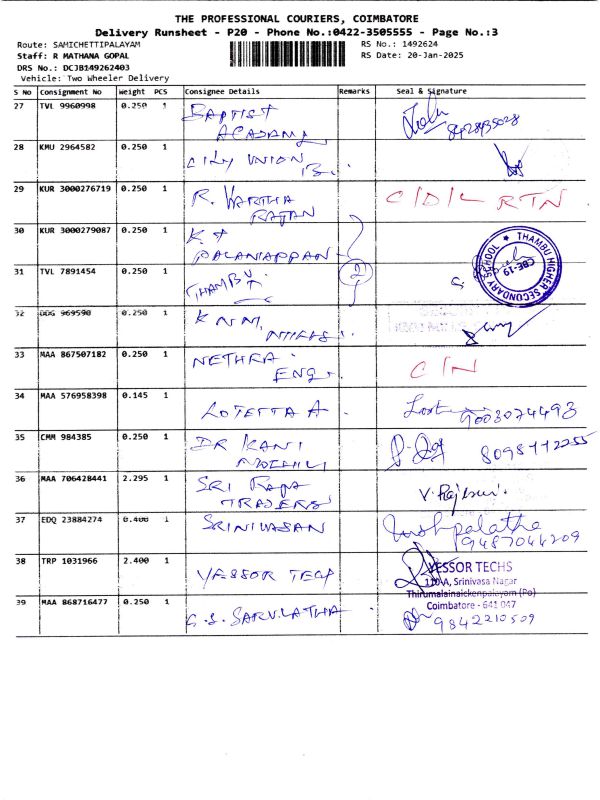 THE PROFESSIONAL COURIERS, COIMBATORE
Delivery Runsheet - P20 - Phone No.:0422-3505555 - Page No.:3
Route: SAMICHETTIPALAYAM
RS No.: 1492624
Staff: R MATHANA GOPAL
RS Date: 20-Jan-2025
DRS No.: DCJB149262403
Vehicle: Two Wheeler Delivery
S No Consignment No Weight PCS Consignee Details Remarks Seal & Signature
27 TVL 9960998 0.250 1 BAPTIST
ACADAMY 8428435028
28 KMU 2964582 0.250 1 CITY UNION
B.
29 KUR 3000276719 0.250 1 R. VARTHA C/D/L RTN
RAJAN
30 KUR 3000279087 0.250 1 K T
PALANIAPPAN
31 TVL 7891454 0.250 1 THAMBU 2
THAMBU HIGHER SECONDARY SCHOOL
CBE-19
32 DDG 969590 0.250 1 K N M
33 MAA 867507182 0.250 1 NETHRA C/N
ENG.
34 MAA 576958398 0.145 1 LOTETTA A 9003074493
35 CMM 984385 0.250 1 DR KANI 8098112255
36 MAA 706428441 2.295 1 SRI RAJA V. Rajeswari
TRADERS
37 EDQ 23884274 0.400 1 SRINIVASAN Pushpalatha
9487044209
38 TRP 1031966 2.400 1 YESSOR TECH
YESSOR TECHS
110-A, Srinivasa Nagar
Thirumalainaickenpalayam (Po)
Coimbatore - 641 047
39 MAA 868716477 0.250 1 G.S. SARULATHA 9842210509